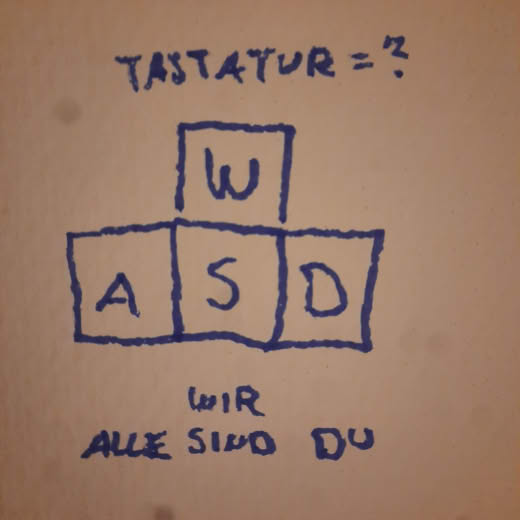 TASTATUR = ?
W
A S D
WIR
ALLE SIND DU